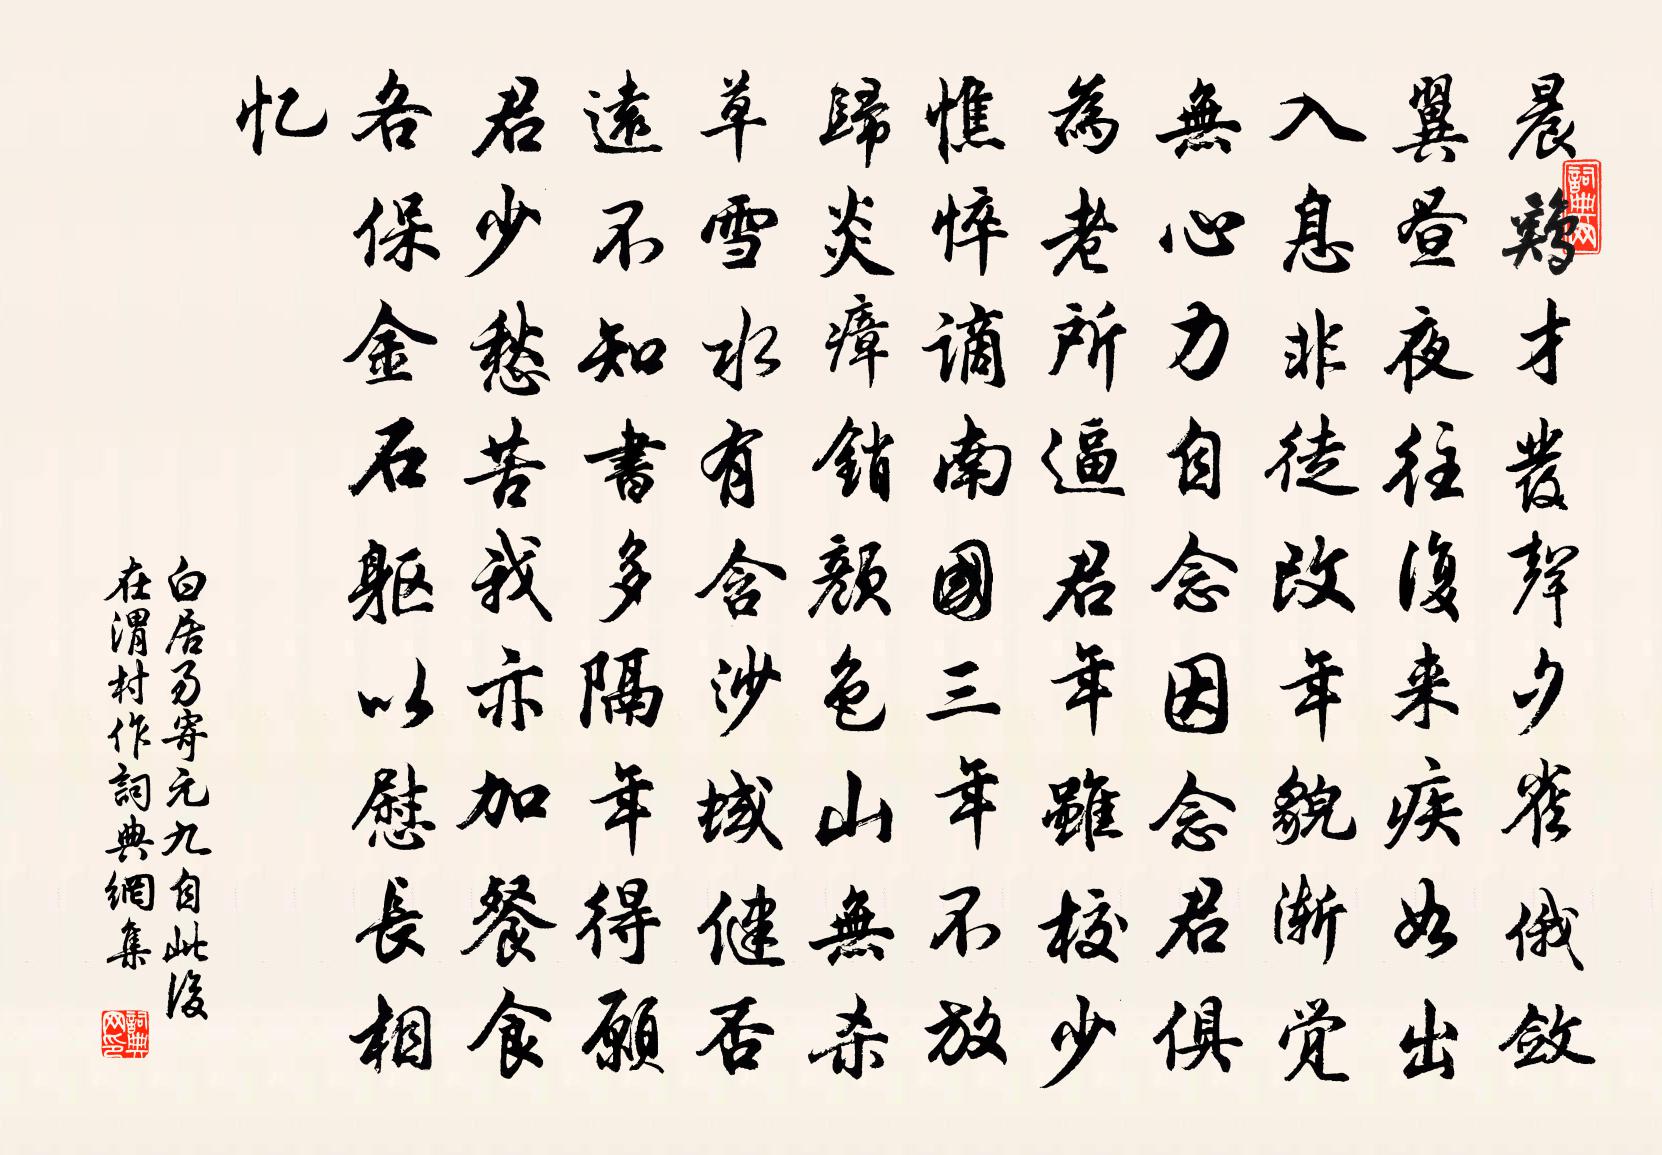 晨鷄才發聲夕雀俄斂
翼昼夜往復来疾如出
入息非徒改年貌渐觉
無心力自念因念君俱
為老所逼君年雖校少
憔悴謫南國三年不放
歸炎瘴銷顔色山無杀
草雪水有含沙域健否
遠不知書多隔年得願
君少愁苦我亦加餐食
各保金石躯以慰長相
忆
白居易寄元九自此後
在渭村作詞典網集
詞典网
詞典网印